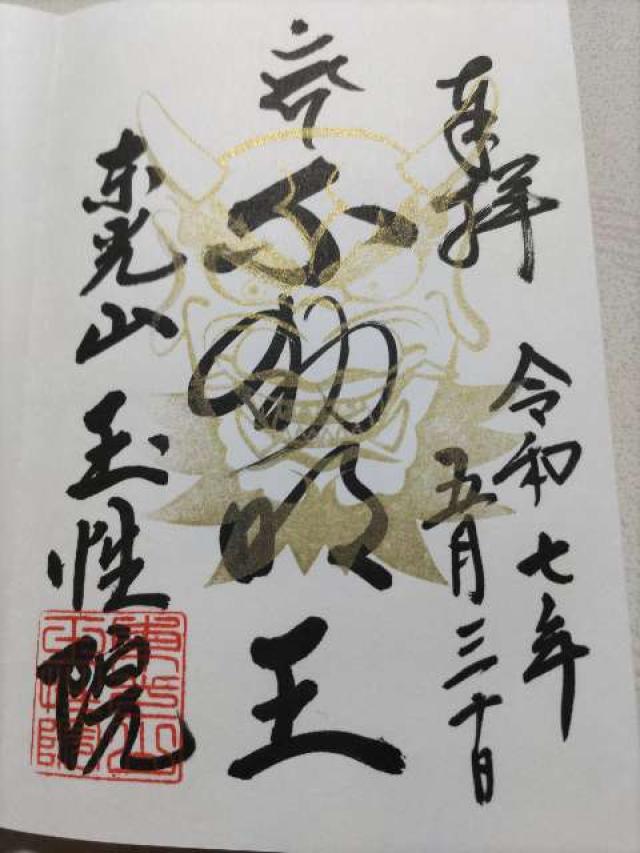 奉拝
令和七年
五月三十日
不動明王
東光山 玉性院